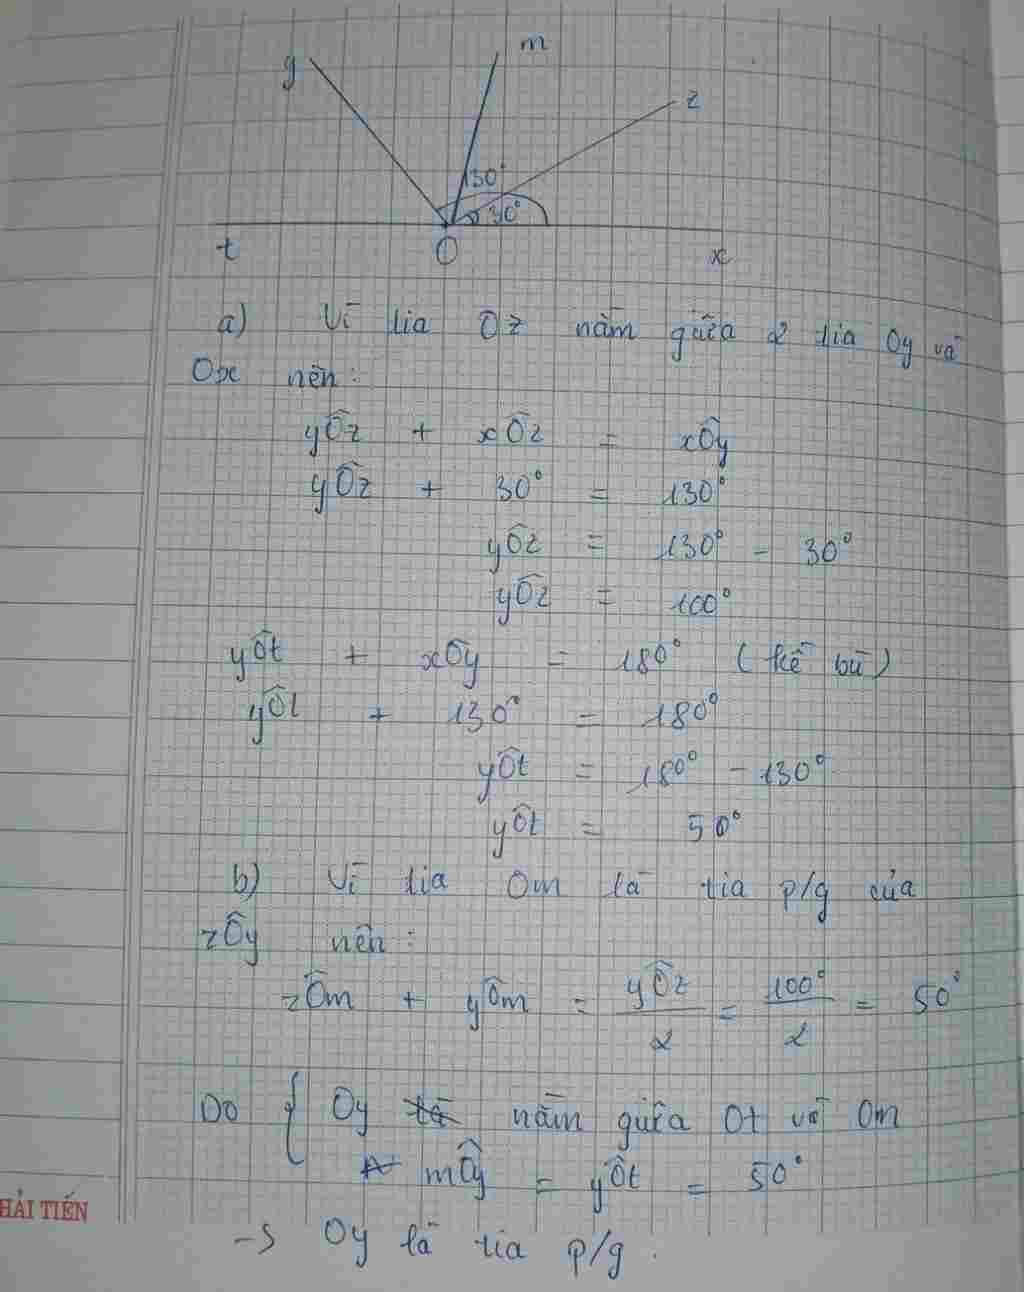 y
m
z
130°
30°
t
O
x
a) Vì tia Oz nằm giữa 2 tia Oy và
Ox nên:
yÔz + xÔz = xÔy
yÔz + 30° = 130°
yÔz = 130° - 30°
yÔz = 100°
yÔt + xÔy = 180° (kề bù)
yÔt + 130° = 180°
yÔt = 180° - 130°
yÔt = 50°
b) Vì tia Om là tia p/g của
zÔy nên:
zÔm + yÔm = yÔz/2 = 100°/2 = 50°
Do { Oy nằm giữa Ot và Om
mÔy = yÔt = 50°
HẢI TIẾN
-> Oy là tia p/g.